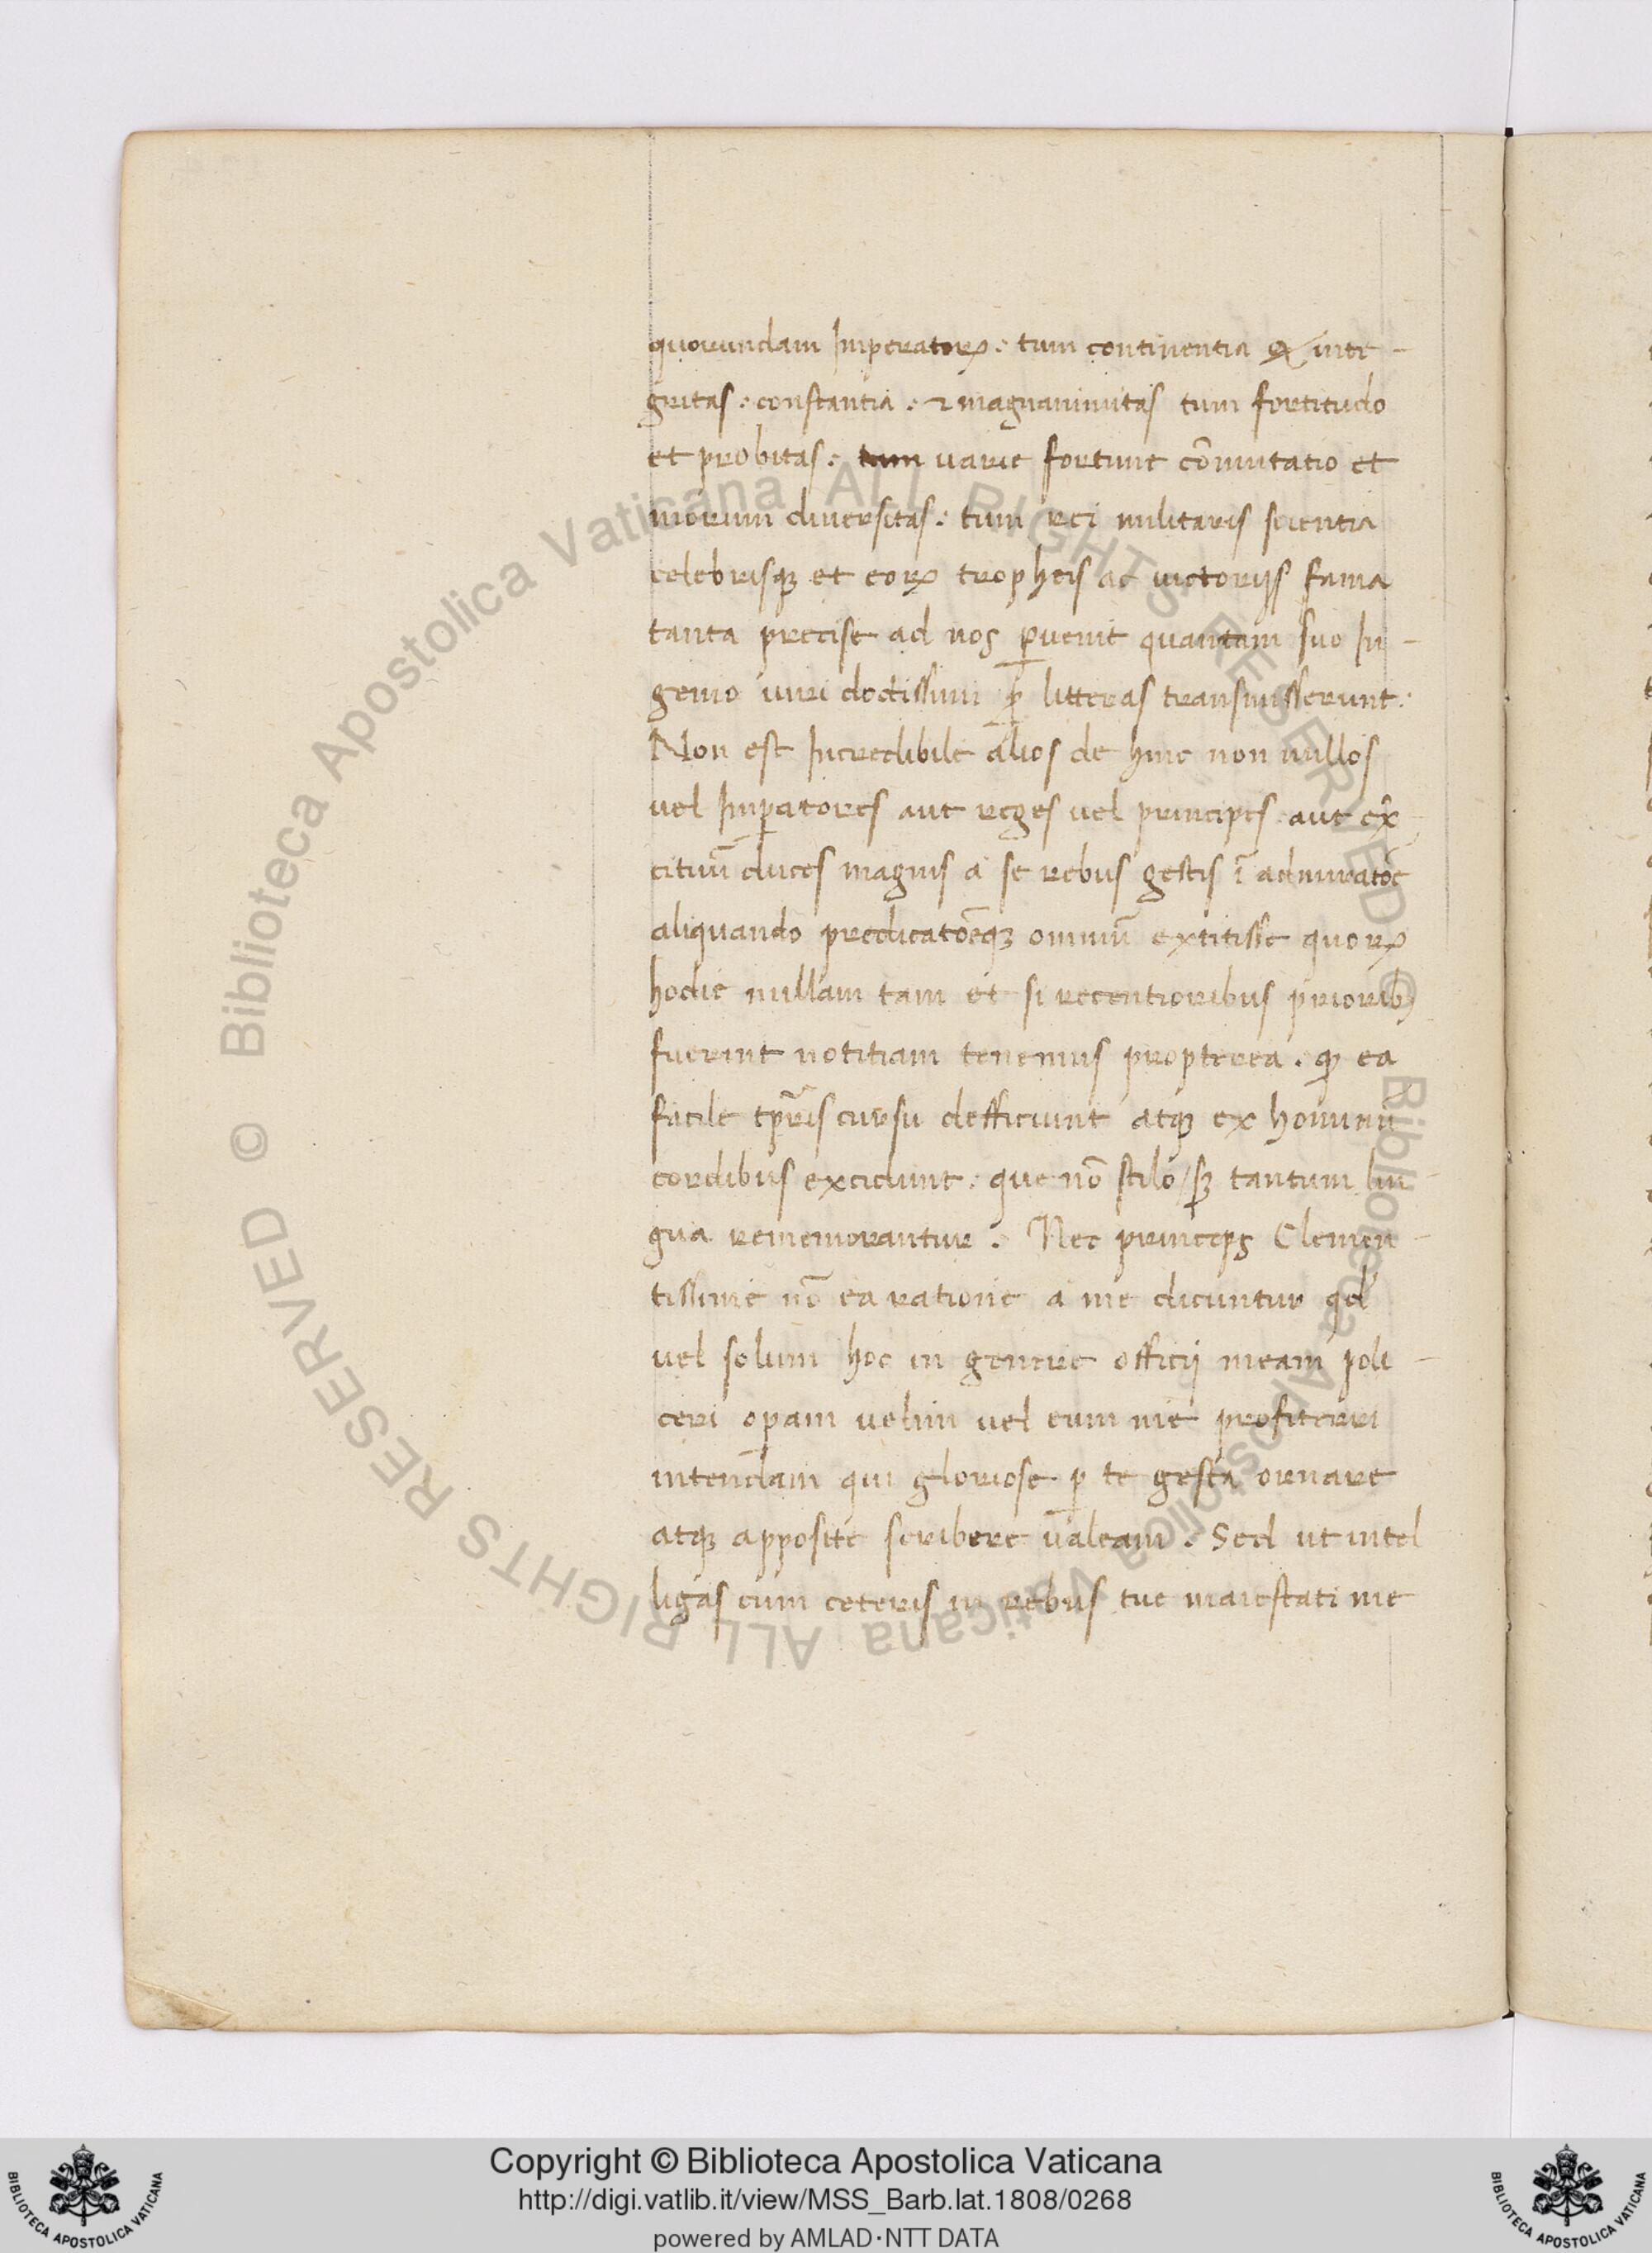 quorundam Imperatorꝝ: tum continentia & inte-
gritas: constantia: ⁊ magnanimitas tum fortitudo
et probitas: tum varie fortune cōmutatio et
morum diuersitas: tum rei militaris scientia
celebrisqꝫ et eorꝝ tropheis ac uictorijs fama
tanta precise ad nos ꝑuenit quantam suo In-
genio uiri doctissimi ꝑ litteras transmisserunt.
Non est Incredibile alios de hinc non nullos
vel Impatores aut reges uel principes aut ex̄-
citiuū duces magnis a se rebus gestis ī admiratōe
aliquando predicatōeqꝫ omniū extitisse quorꝝ
hodie nullam tam et si recentioribus priorib;
fuerint notitiam tenemus propterea. ꝙ ea
facile tp̄ris cursu defficiunt atqꝫ ex hominū
cordibus excidunt. que nō stilo / sꝫ tantum lin-
gua rememorantur. Nec princeps Clemen-
tissime nō ea ratione a me dicuntur qd̄
vel solum hoc in genere officij meam poli-
ceri opam uelim vel eum me profiterri
intendam qui gloriose ꝑ te gesta ornare
atqꝫ apposite scribere ualeam. Sed ut intel
ligas cum ceteris in rebus tue maiestati me
© Biblioteca Apostolica Vaticana ALL RIGHTS RESERVED
© Biblioteca Apostolica Vaticana ALL RIGHTS RESERVED
Copyright © Biblioteca Apostolica Vaticana
http://digi.vatlib.it/view/MSS_Barb.lat.1808/0268
powered by AMLAD·NTT DATA
BIBLIOTECA APOSTOLICA VATICANA
BIBLIOTECA APOSTOLICA VATICANA